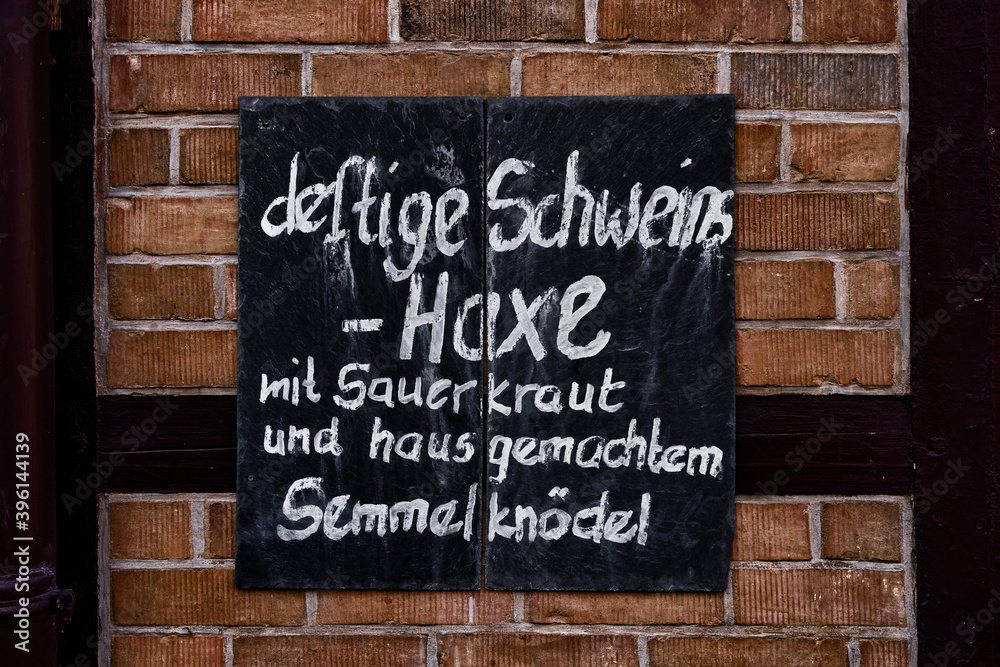 deftige Schweins
- Haxe
mit Sauerkraut
und hausgemachtem
Semmelknödel
Adobe Stock | #396144139